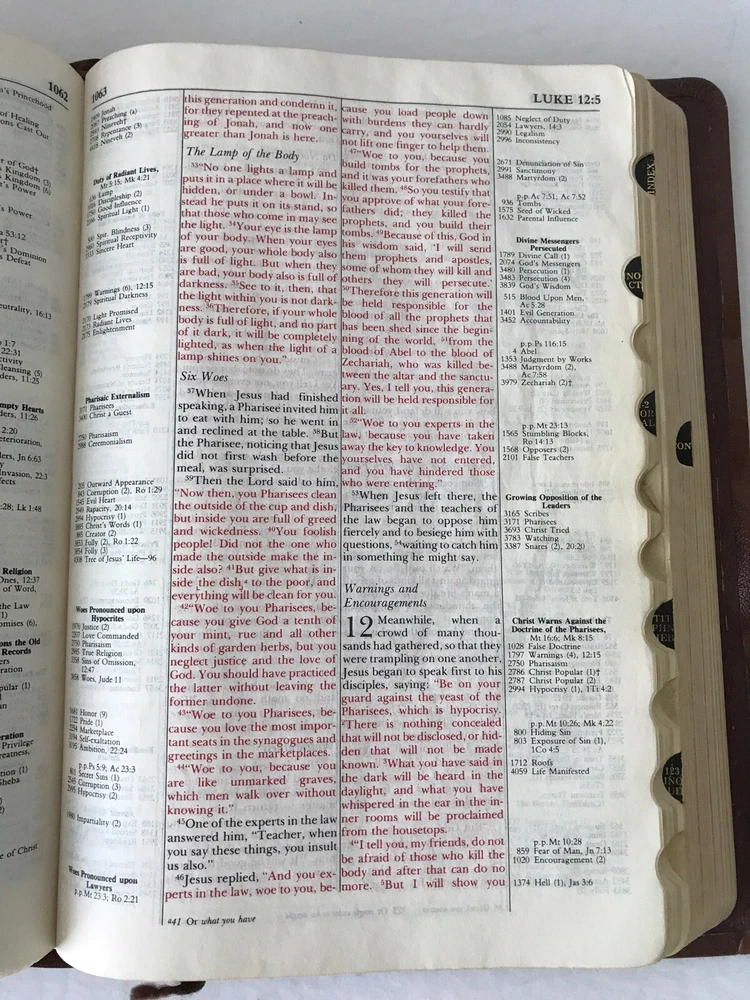 1062
1063
LUKE 12:5
this generation and condemn it,
for they repented at the preach-
ing of Jonah, and now one
greater than Jonah is here.
The Lamp of the Body
33"No one lights a lamp and
puts it in a place where it will be
hidden, or under a bowl. In-
stead he puts it on its stand, so
that those who come in may see
the light. 34Your eye is the lamp
of your body. When your eyes
are good, your whole body also
is full of light. But when they
are bad, your body also is full of
darkness. 35See to it, then, that
the light within you is not dark-
ness. 36Therefore, if your whole
body is full of light, and no part
of it dark, it will be completely
lighted, as when the light of a
lamp shines on you."
Six Woes
37When Jesus had finished
speaking, a Pharisee invited him
to eat with him; so he went in
and reclined at the table. 38But
the Pharisee, noticing that Jesus
did not first wash before the
meal, was surprised.
39Then the Lord said to him,
"Now then, you Pharisees clean
the outside of the cup and dish,
but inside you are full of greed
and wickedness. 40You foolish
people! Did not the one who
made the outside make the in-
side also? 41But give what is in-
side ⌊the dish⌋a to the poor, and
everything will be clean for you.
42"Woe to you Pharisees, be-
cause you give God a tenth of
your mint, rue and all other
kinds of garden herbs, but you
neglect justice and the love of
God. You should have practiced
the latter without leaving the
former undone.
43"Woe to you Pharisees, be-
cause you love the most impor-
tant seats in the synagogues and
greetings in the marketplaces.
44"Woe to you, because you
are like unmarked graves,
which men walk over without
knowing it."
45One of the experts in the law
answered him, "Teacher, when
you say these things, you insult
us also."
46Jesus replied, "And you ex-
perts in the law, woe to you, be-
a41 Or what you have
cause you load people down
with burdens they can hardly
carry, and you yourselves will
not lift one finger to help them.
47"Woe to you, because you
build tombs for the prophets,
and it was your forefathers who
killed them. 48So you testify that
you approve of what your fore-
fathers did; they killed the
prophets, and you build their
tombs. 49Because of this, God in
his wisdom said, 'I will send
them prophets and apostles,
some of whom they will kill and
others they will persecute.'
50Therefore this generation will
be held responsible for the
blood of all the prophets that
has been shed since the begin-
ning of the world, 51from the
blood of Abel to the blood of
Zechariah, who was killed be-
tween the altar and the sanctu-
ary. Yes, I tell you, this genera-
tion will be held responsible for
it all.
52"Woe to you experts in the
law, because you have taken
away the key to knowledge. You
yourselves have not entered,
and you have hindered those
who were entering."
53When Jesus left there, the
Pharisees and the teachers of
the law began to oppose him
fiercely and to besiege him with
questions, 54waiting to catch him
in something he might say.
Warnings and
Encouragements
12 Meanwhile, when a
crowd of many thou-
sands had gathered, so that they
were trampling on one another,
Jesus began to speak first to his
disciples, saying: "Be on your
guard against the yeast of the
Pharisees, which is hypocrisy.
2There is nothing concealed
that will not be disclosed, or hid-
den that will not be made
known. 3What you have said in
the dark will be heard in the
daylight, and what you have
whispered in the ear in the in-
ner rooms will be proclaimed
from the housetops.
4"I tell you, my friends, do not
be afraid of those who kill the
body and after that can do no
more. 5But I will show you
Jonah
Preaching (a)
Nineveh†
Repentance (3)
Nineveh (2)
Duty of Radiant Lives,
Mt 5:15; Mk 4:21
Lamp
Discipleship (2)
Good Influence
Spiritual Light (1)
Spir. Blindness (3)
Spiritual Receptivity
Sincere Heart
Warnings (6), 12:15
Spiritual Darkness
Light Promised
Radiant Lives
Enlightenment
Pharisaic Externalism
Pharisees
Christ a Guest
Pharisaism
Ceremonialism
Outward Appearance
Corruption (2), Ro 1:29
Evil Heart
Rapacity, 20:14
Hypocrisy (1)
Christ's Words (1)
Creator (2)
Folly (2), Ro 1:22
Folly (3)
Tree of Jesus' Life—96
Woes Pronounced upon
Hypocrites
Justice (2)
Love Commanded
Pharisaism
True Religion
Sins of Omission,
12:47
Woes, Jude 11
Honor (9)
Pride (1)
Marketplace
Self-exaltation
Ambition, 22:24
p.p. Ps 5:9; Ac 23:3
Secret Sins (1)
Corruption (3)
Hypocrisy (2)
Impartiality (2)
Woes Pronounced upon
Lawyers
p.p. Mt 23:3; Ro 2:21
1085 Neglect of Duty
2054 Lawyers, 14:3
2990 Legalism
2996 Inconsistency
2671 Denunciation of Sin
2991 Sanctimony
3488 Martyrdom (2)
p.p. Ac 7:51; Ac 7:52
936 Tombs
1575 Seed of Wicked
1632 Parental Influence
Divine Messengers
Persecuted
1789 Divine Call (1)
2074 God's Messengers
3480 Persecution (1)
3483 Persecution (4)
3839 God's Wisdom
515 Blood Upon Men,
Ac 5:28
1401 Evil Generation
3452 Accountability
p.p. Ps 116:15
4 Abel
1353 Judgment by Works
3488 Martyrdom (2),
Ac 7:58
3979 Zechariah (2)†
p.p. Mt 23:13
1565 Stumbling Blocks,
Ro 14:13
1568 Opposers (2)
2101 False Teachers
Growing Opposition of the
Leaders
3165 Scribes
3171 Pharisees
3693 Christ Tried
3783 Watching
3387 Snares (2), 20:20
Christ Warns Against the
Doctrine of the Pharisees,
Mt 16:6; Mk 8:15
1028 False Doctrine
1797 Warnings (4), 12:15
2750 Pharisaism
2786 Christ Popular (1)†
2787 Christ Popular (2)
2994 Hypocrisy (1), 1Ti 4:2
p.p. Mt 10:26; Mk 4:22
800 Hiding Sin
803 Exposure of Sin (1),
1Co 4:5
1712 Roofs
4059 Life Manifested
p.p. Mt 10:28
859 Fear of Man, Jn 7:13
1020 Encouragement (2)
1374 Hell (1), Jas 3:6
INDEX